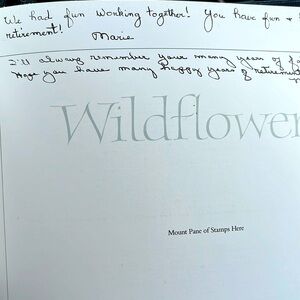 We had fun working together! You have fun +
retirement!
Marie
I'll always remember your many years of
Hope you have many happy years of retirement
Wildflower
Mount Pane of Stamps Here